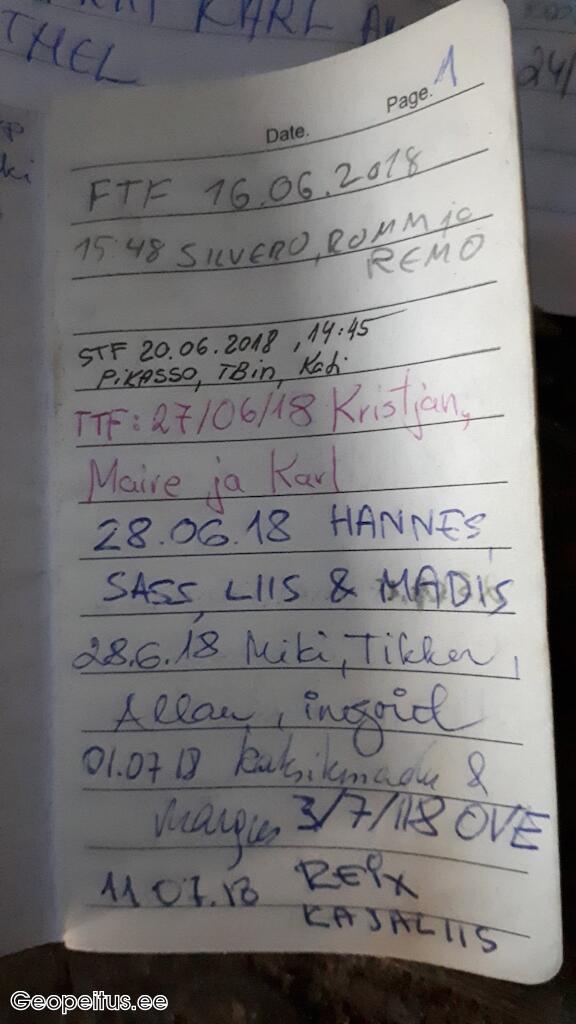 KARL
THEL
24/
ki
Page. 1
Date.
FTF 16.06.2018
15:48 SILVERO, ROMM ja
REMO
STF 20.06.2018, 14:45
PiKASSO, TBin, Kadi
TTF: 27/06/18 Kristjan,
Maire ja Karl
28.06.18 HANNES,
SASS, LIIS & MADIS
28.6.18 Miki, Tikker,
Allan, ingrid
01.07 18 kaksikmadu &
Margus 3/7/118 OVE
11 07.18 REiX
KAJALIIS
Geopeitus.ee